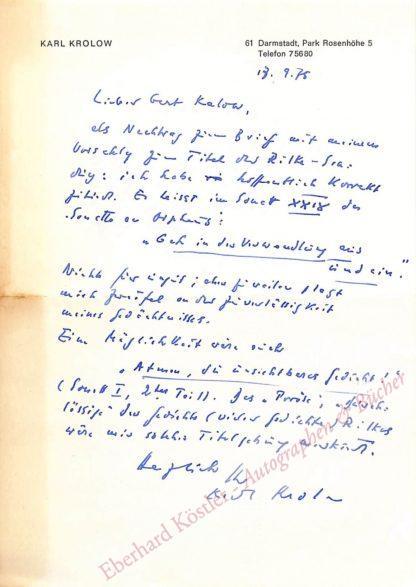 KARL KROLOW
61 Darmstadt, Park Rosenhöhe 5
Telefon 75680
9.75
Lieber Gert Kalow,
als Nachtrag zum Brief mit meinem
Vorschlag zum Titel der Rilke-Sen-
dung: ich habe hoffentlich korrekt
zitiert. Es heisst im Sonett XXIX der
Sonette an Orpheus:
"Geh in der Verwandlung aus
und ein."
Nichts für ungut; aber zuweilen plagt
mich Zweifel an der Zuverlässigkeit
meines Gedächtnisses.
Eine Möglichkeit wäre auch
"Atmen, du unsichtbares Gedicht!"
(Sonett I, 2ter Teil). Das "Poröse",
lässige des Gedichts (vieler Gedichte) Rilkes
wäre mit solcher Titelgebung
Herzlich Ihr
Karl Krolow
Eberhard Köstler Autographen & Bücher